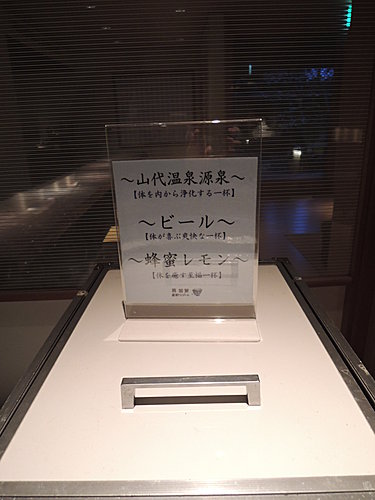 ～山代温泉源泉～
【体を内から浄化する一杯】
～ビール～
【体が喜ぶ爽快な一杯】
～蜂蜜レモン～
【体を癒す至福一杯】